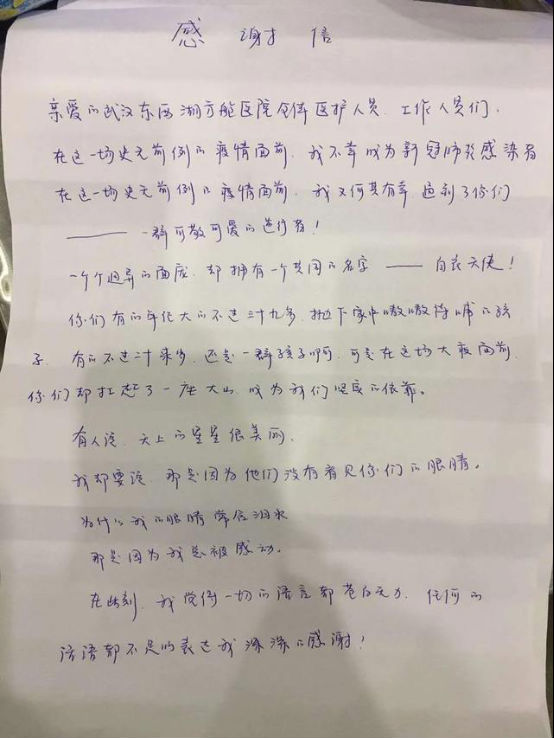 感谢信
亲爱的武汉东西湖方舱医院全体医护人员、工作人员们，
在这一场史无前例的疫情面前，我不幸成为新冠肺炎感染者
在这一场史无前例的疫情面前，我又何其有幸，遇到了你们
—— 一群可敬可爱的逆行者！
一个个迥异的面庞，却拥有一个共同的名字 —— 白衣天使！
你们有的年纪大的不过三十九岁，抛下家中嗷嗷待哺的孩
子，有的不过二十来岁，还是一群孩子啊，可是在这场大疫面前，
你们却扛起了一座大山，成为我们坚实的依靠。
有人说，天上的星星很美丽，
我却要说，那是因为他们没有看见你们的眼睛。
为什么我的眼睛常含泪水
那是因为我总被感动。
在此刻，我觉得一切的语言都苍白无力，任何的
话语都不足以表达我深深的感谢！